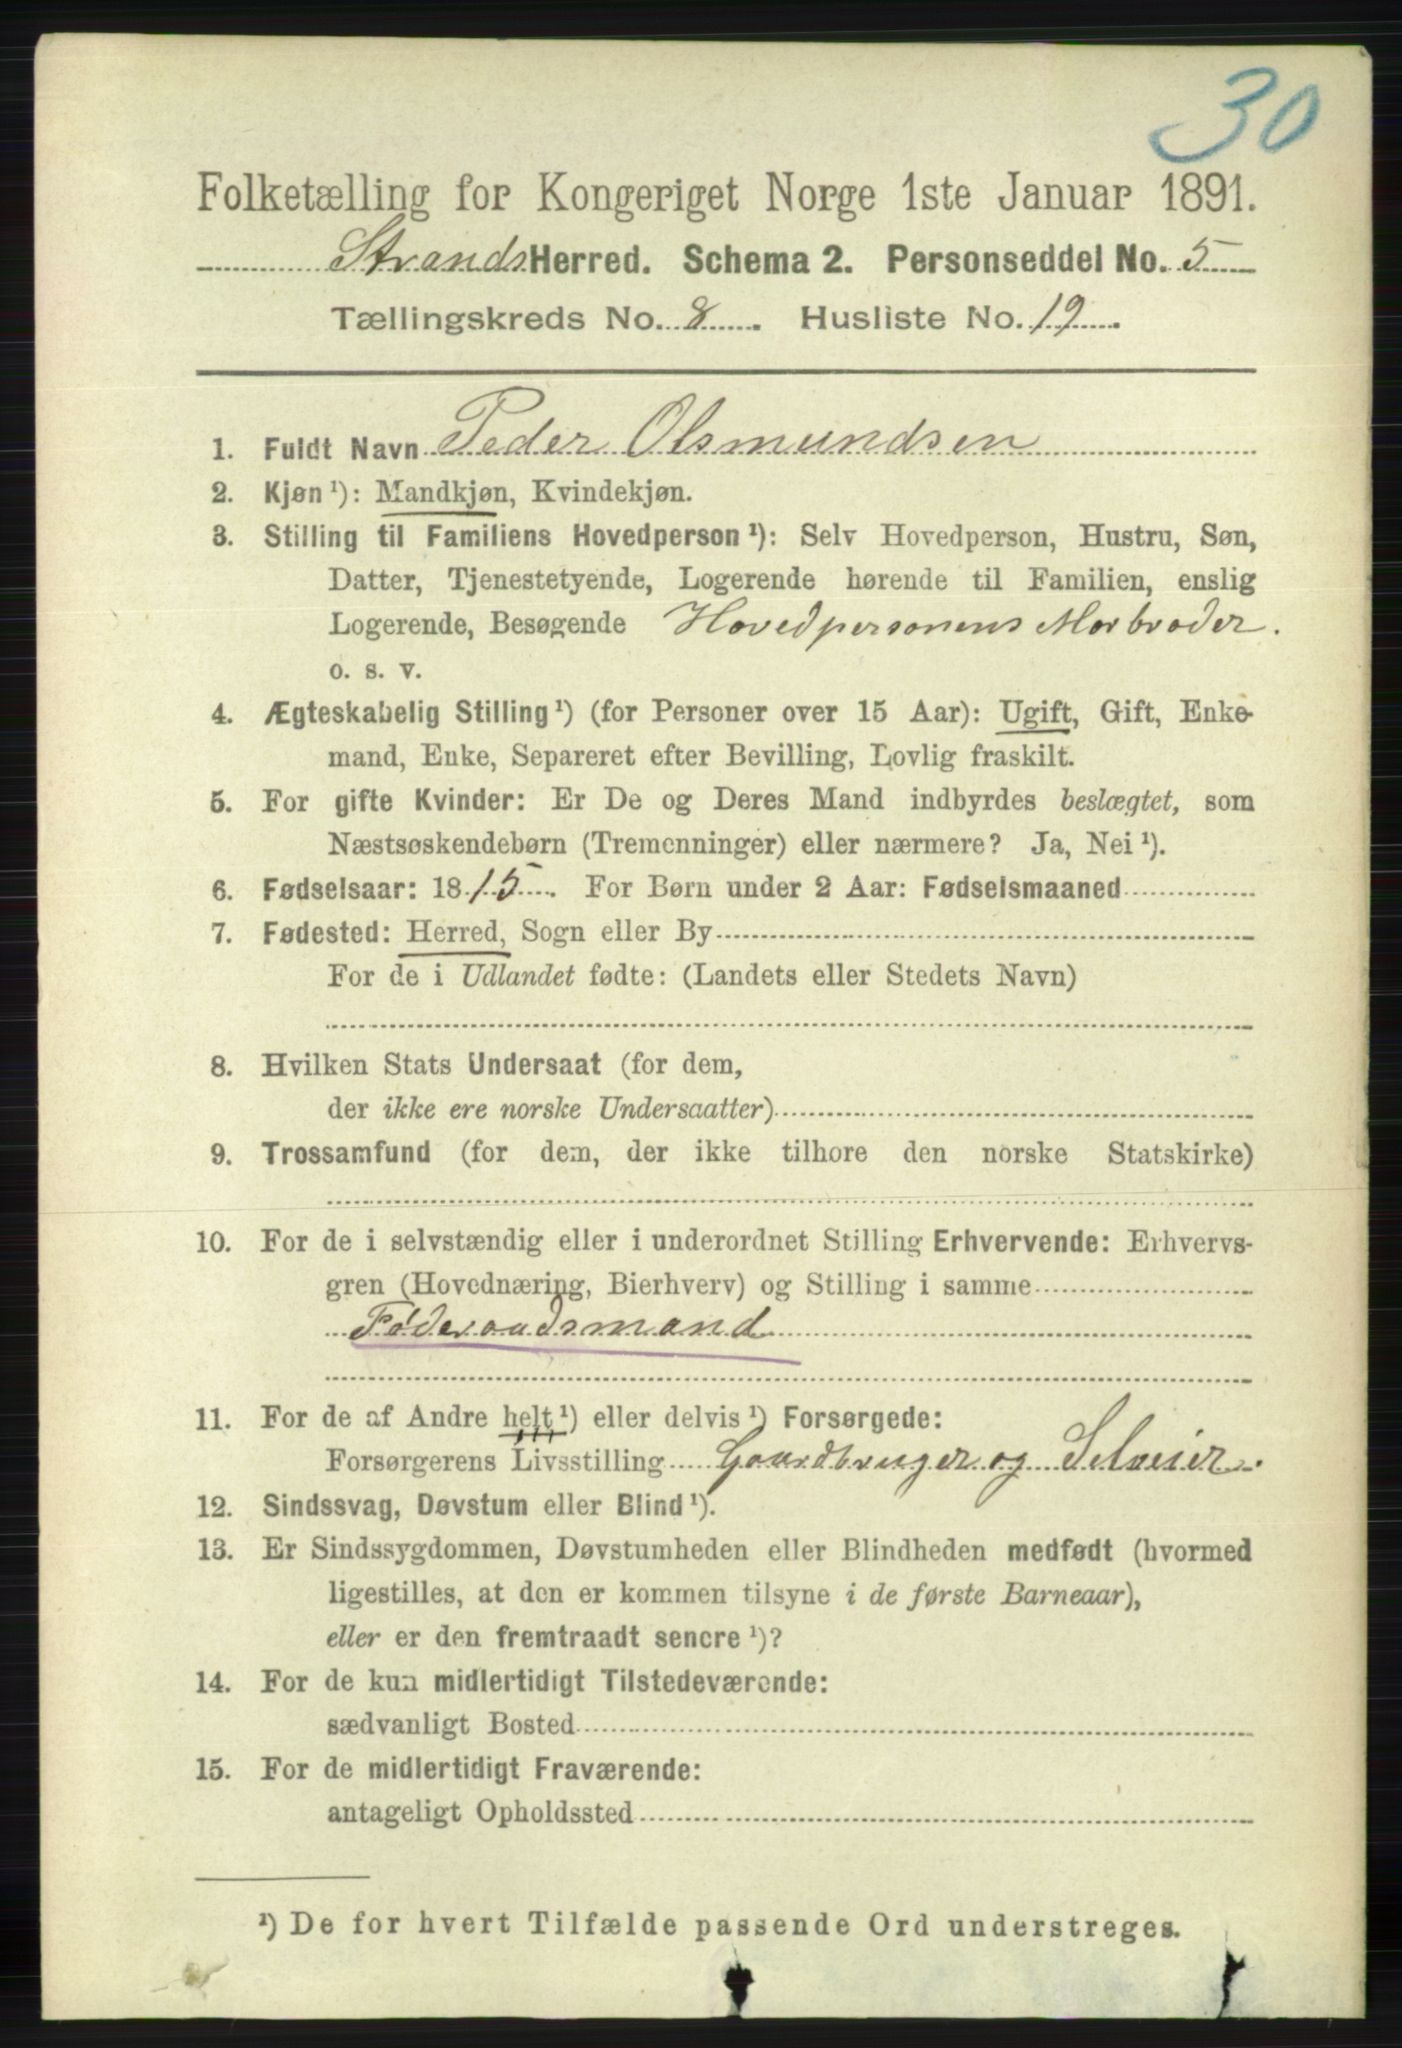 30
Folketælling for Kongeriget Norge 1ste Januar 1891.
Strands Herred. Schema 2. Personseddel No. 5
Tællingskreds No. 8. Husliste No. 19.
1. Fuldt Navn Peder Olsmundsen
2. Kjøn ¹): Mandkjøn, Kvindekjøn.
3. Stilling til Familiens Hovedperson ¹): Selv Hovedperson, Hustru, Søn,
Datter, Tjenestetyende, Logerende hørende til Familien, enslig
Logerende, Besøgende Hovedpersonens Morbroder.
o. s. v.
4. Ægteskabelig Stilling ¹) (for Personer over 15 Aar): Ugift, Gift, Enke-
mand, Enke, Separeret efter Bevilling, Lovlig fraskilt.
5. For gifte Kvinder: Er De og Deres Mand indbyrdes beslægtet, som
Næstsøskendebørn (Tremenninger) eller nærmere? Ja, Nei ¹).
6. Fødselsaar: 1815. For Børn under 2 Aar: Fødselsmaaned
7. Fødested: Herred, Sogn eller By
For de i Udlandet fødte: (Landets eller Stedets Navn)
8. Hvilken Stats Undersaat (for dem,
der ikke ere norske Undersaatter)
9. Trossamfund (for dem, der ikke tilhore den norske Statskirke)
10. For de i selvstændig eller i underordnet Stilling Erhvervende: Erhvervs-
gren (Hovednæring, Bierhverv) og Stilling i samme
Føderaadsmand
11. For de af Andre helt ¹) eller delvis ¹) Forsørgede:
Forsørgerens Livsstilling Gaardbruger og Selveier.
12. Sindssvag, Døvstum eller Blind ¹).
13. Er Sindssygdommen, Døvstumheden eller Blindheden medfødt (hvormed
ligestilles, at den er kommen tilsyne i de første Barneaar),
eller er den fremtraadt senere ¹)?
14. For de kun midlertidigt Tilstedeværende:
sædvanligt Bosted
15. For de midlertidigt Fraværende:
antageligt Opholdssted
¹) De for hvert Tilfælde passende Ord understreges.